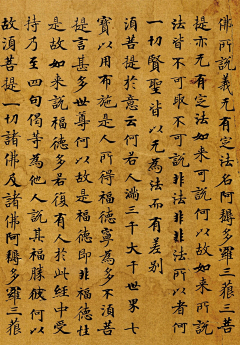 佛所說義无有定法名阿耨多羅三藐三菩
提亦无有定法如來可說何以故如來所說
法皆不可取不可說非法非非法所以者何
一切賢聖皆以无為法而有差別
須菩提於意云何若人滿三千大千世界七
寶以用布施是人所得福德寧為多不須菩
提言甚多世尊何以故是福德即非福德性
是故如來說福德多若復有人於此經中受
持乃至四句偈等為他人說其福勝彼何以
故須菩提一切諸佛及諸佛阿耨多羅三藐